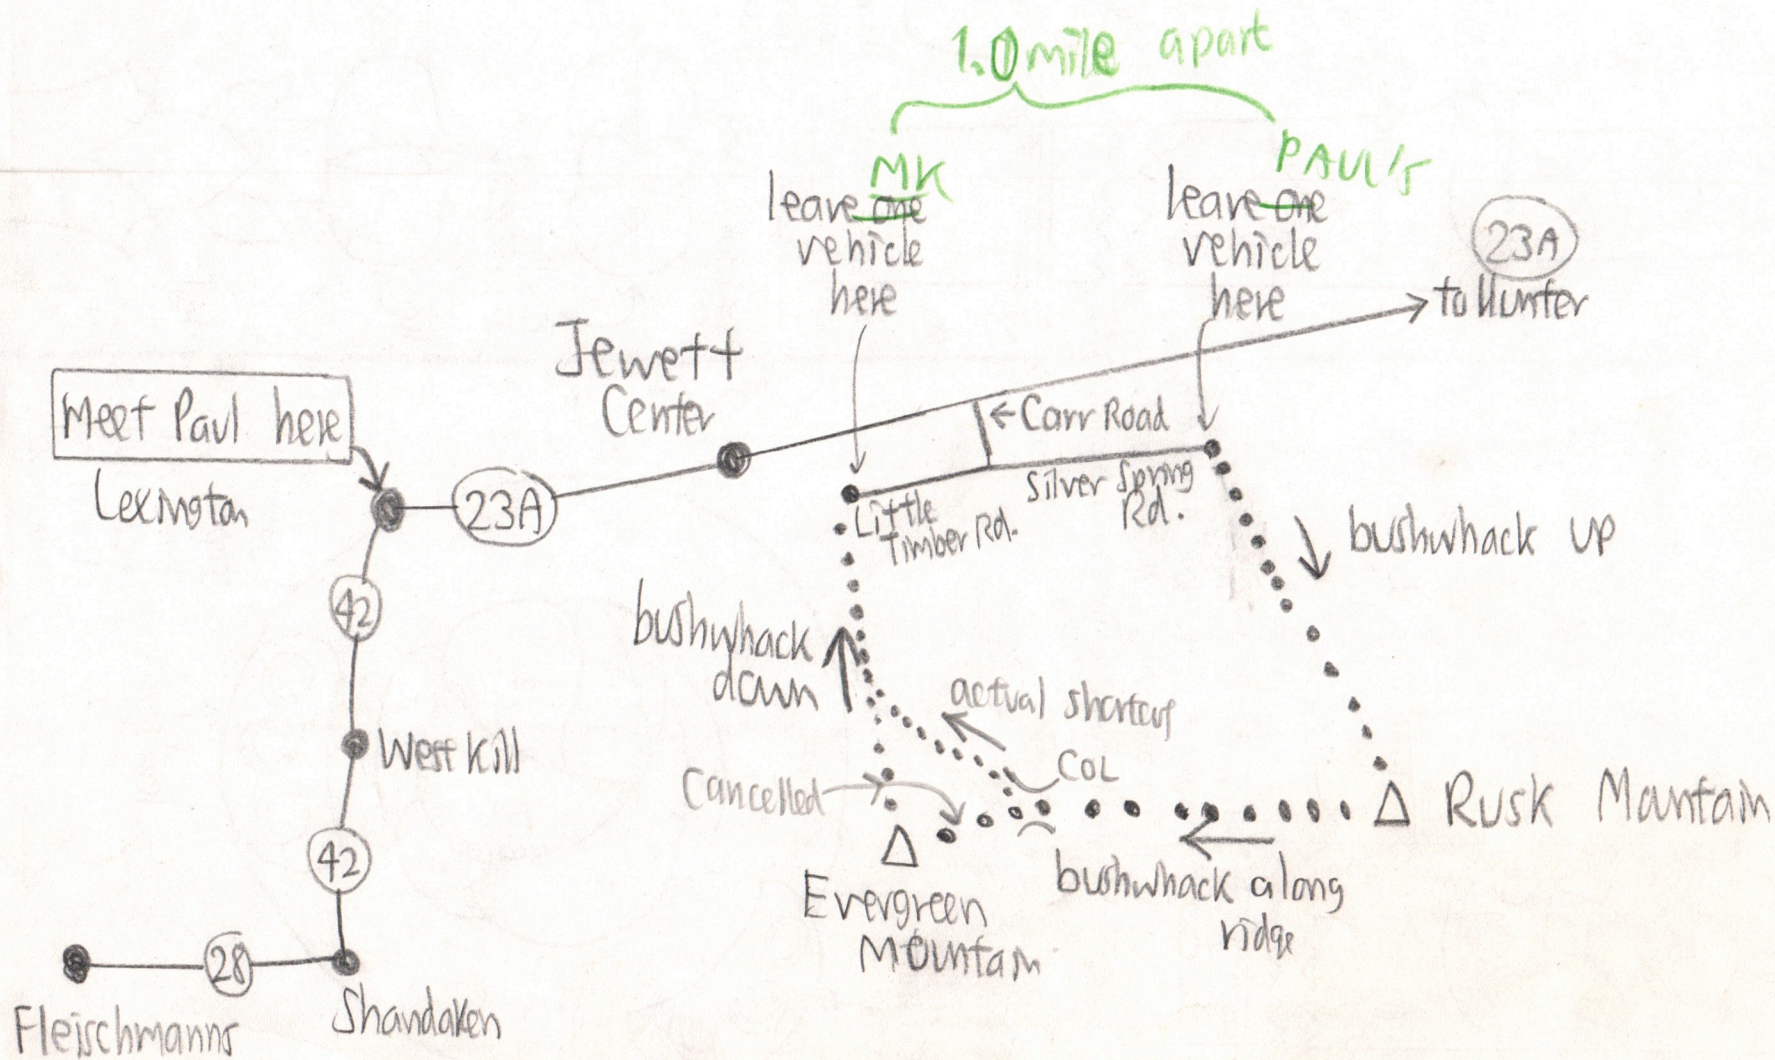 1.0 mile apart
MK
leave one
vehicle
here
PAUL's
leave one
vehicle
here
23A
to Hunter
Jewett
Center
Meet Paul here
Lexington
23A
← Carr Road
Silver Spring
Rd.
Little
Timber Rd.
bushwhack up
42
bushwhack
down
actual shortcut
West Kill
COL
Cancelled
Rusk Mountain
42
Evergreen
Mountain
bushwhack along
ridge
28
Fleischmanns
Shandaken